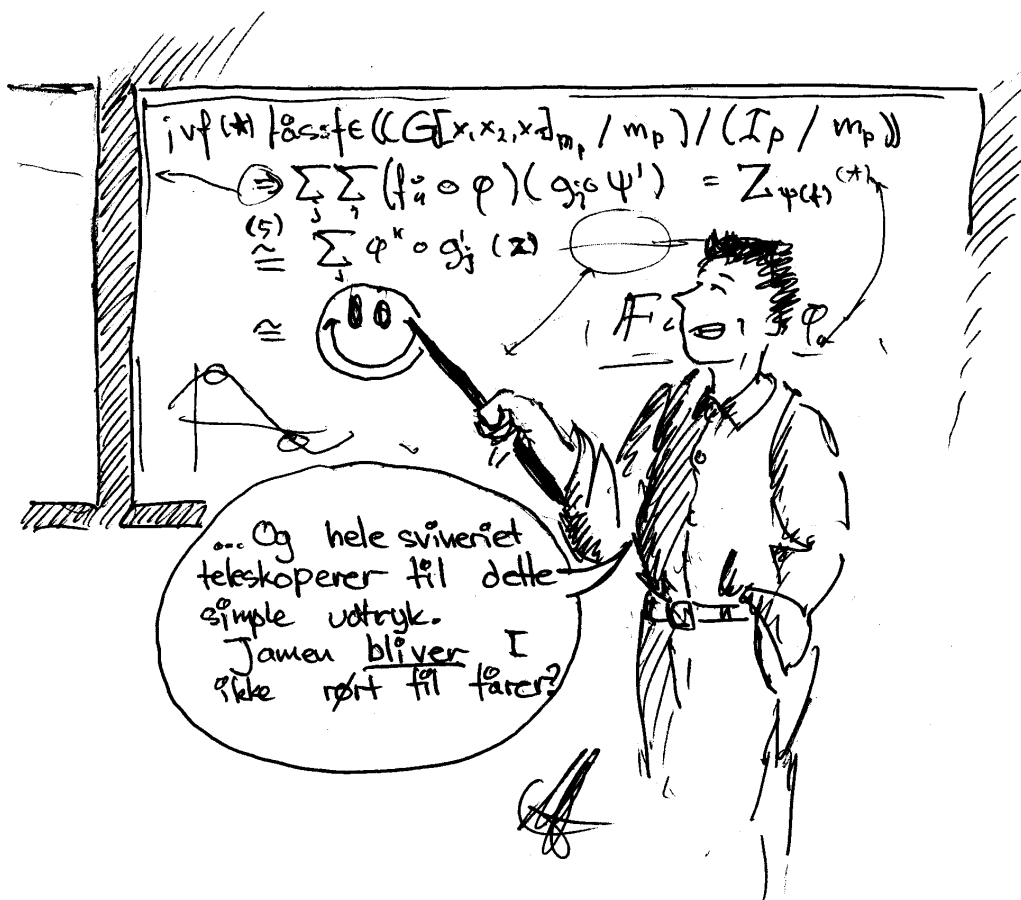 jvf (*) fås: f ∈ ((CG[x₁,x₂,x₃]ₘₚ / mₚ) / (Iₚ / mₚ))
⇒ ∑ ∑ (f ∘ φ)(g ∘ ψ') = Z ψ(f) (*)
(5)
≅ ∑ φᵏ ∘ g'ⱼ (z)
≅
F φ
... Og hele svineriet
teleskoperer til dette
simple udtryk.
Jamen bliver I
ikke rørt til tårer?